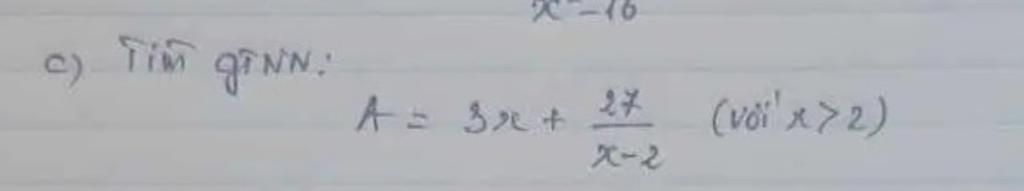 x²-16
c) Tìm GTNN:
A = 3x + 27/(x-2) (với x>2)